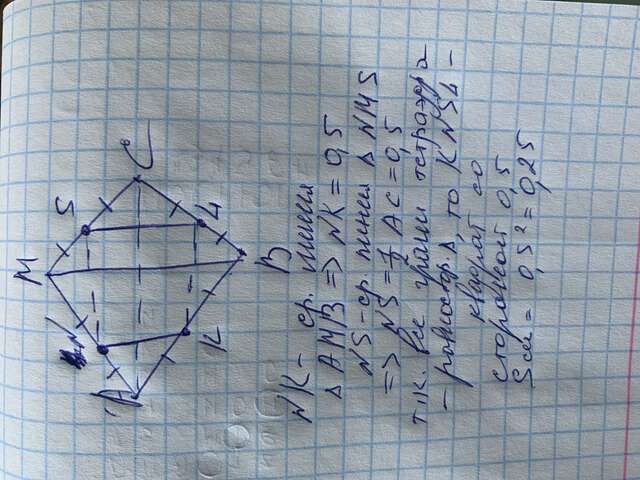 M
S
C
N
4
A
K
B
NK - ср. линия
Δ AMB => NK = 0,5
NS - ср. линия Δ NMS
=> NS = 1/2 AC = 0,5
т.к. все грани тетраэдра
- равностор. Δ, то KNS4 -
квадрат со
стороной 0,5
Sсеч = 0,5² = 0,25